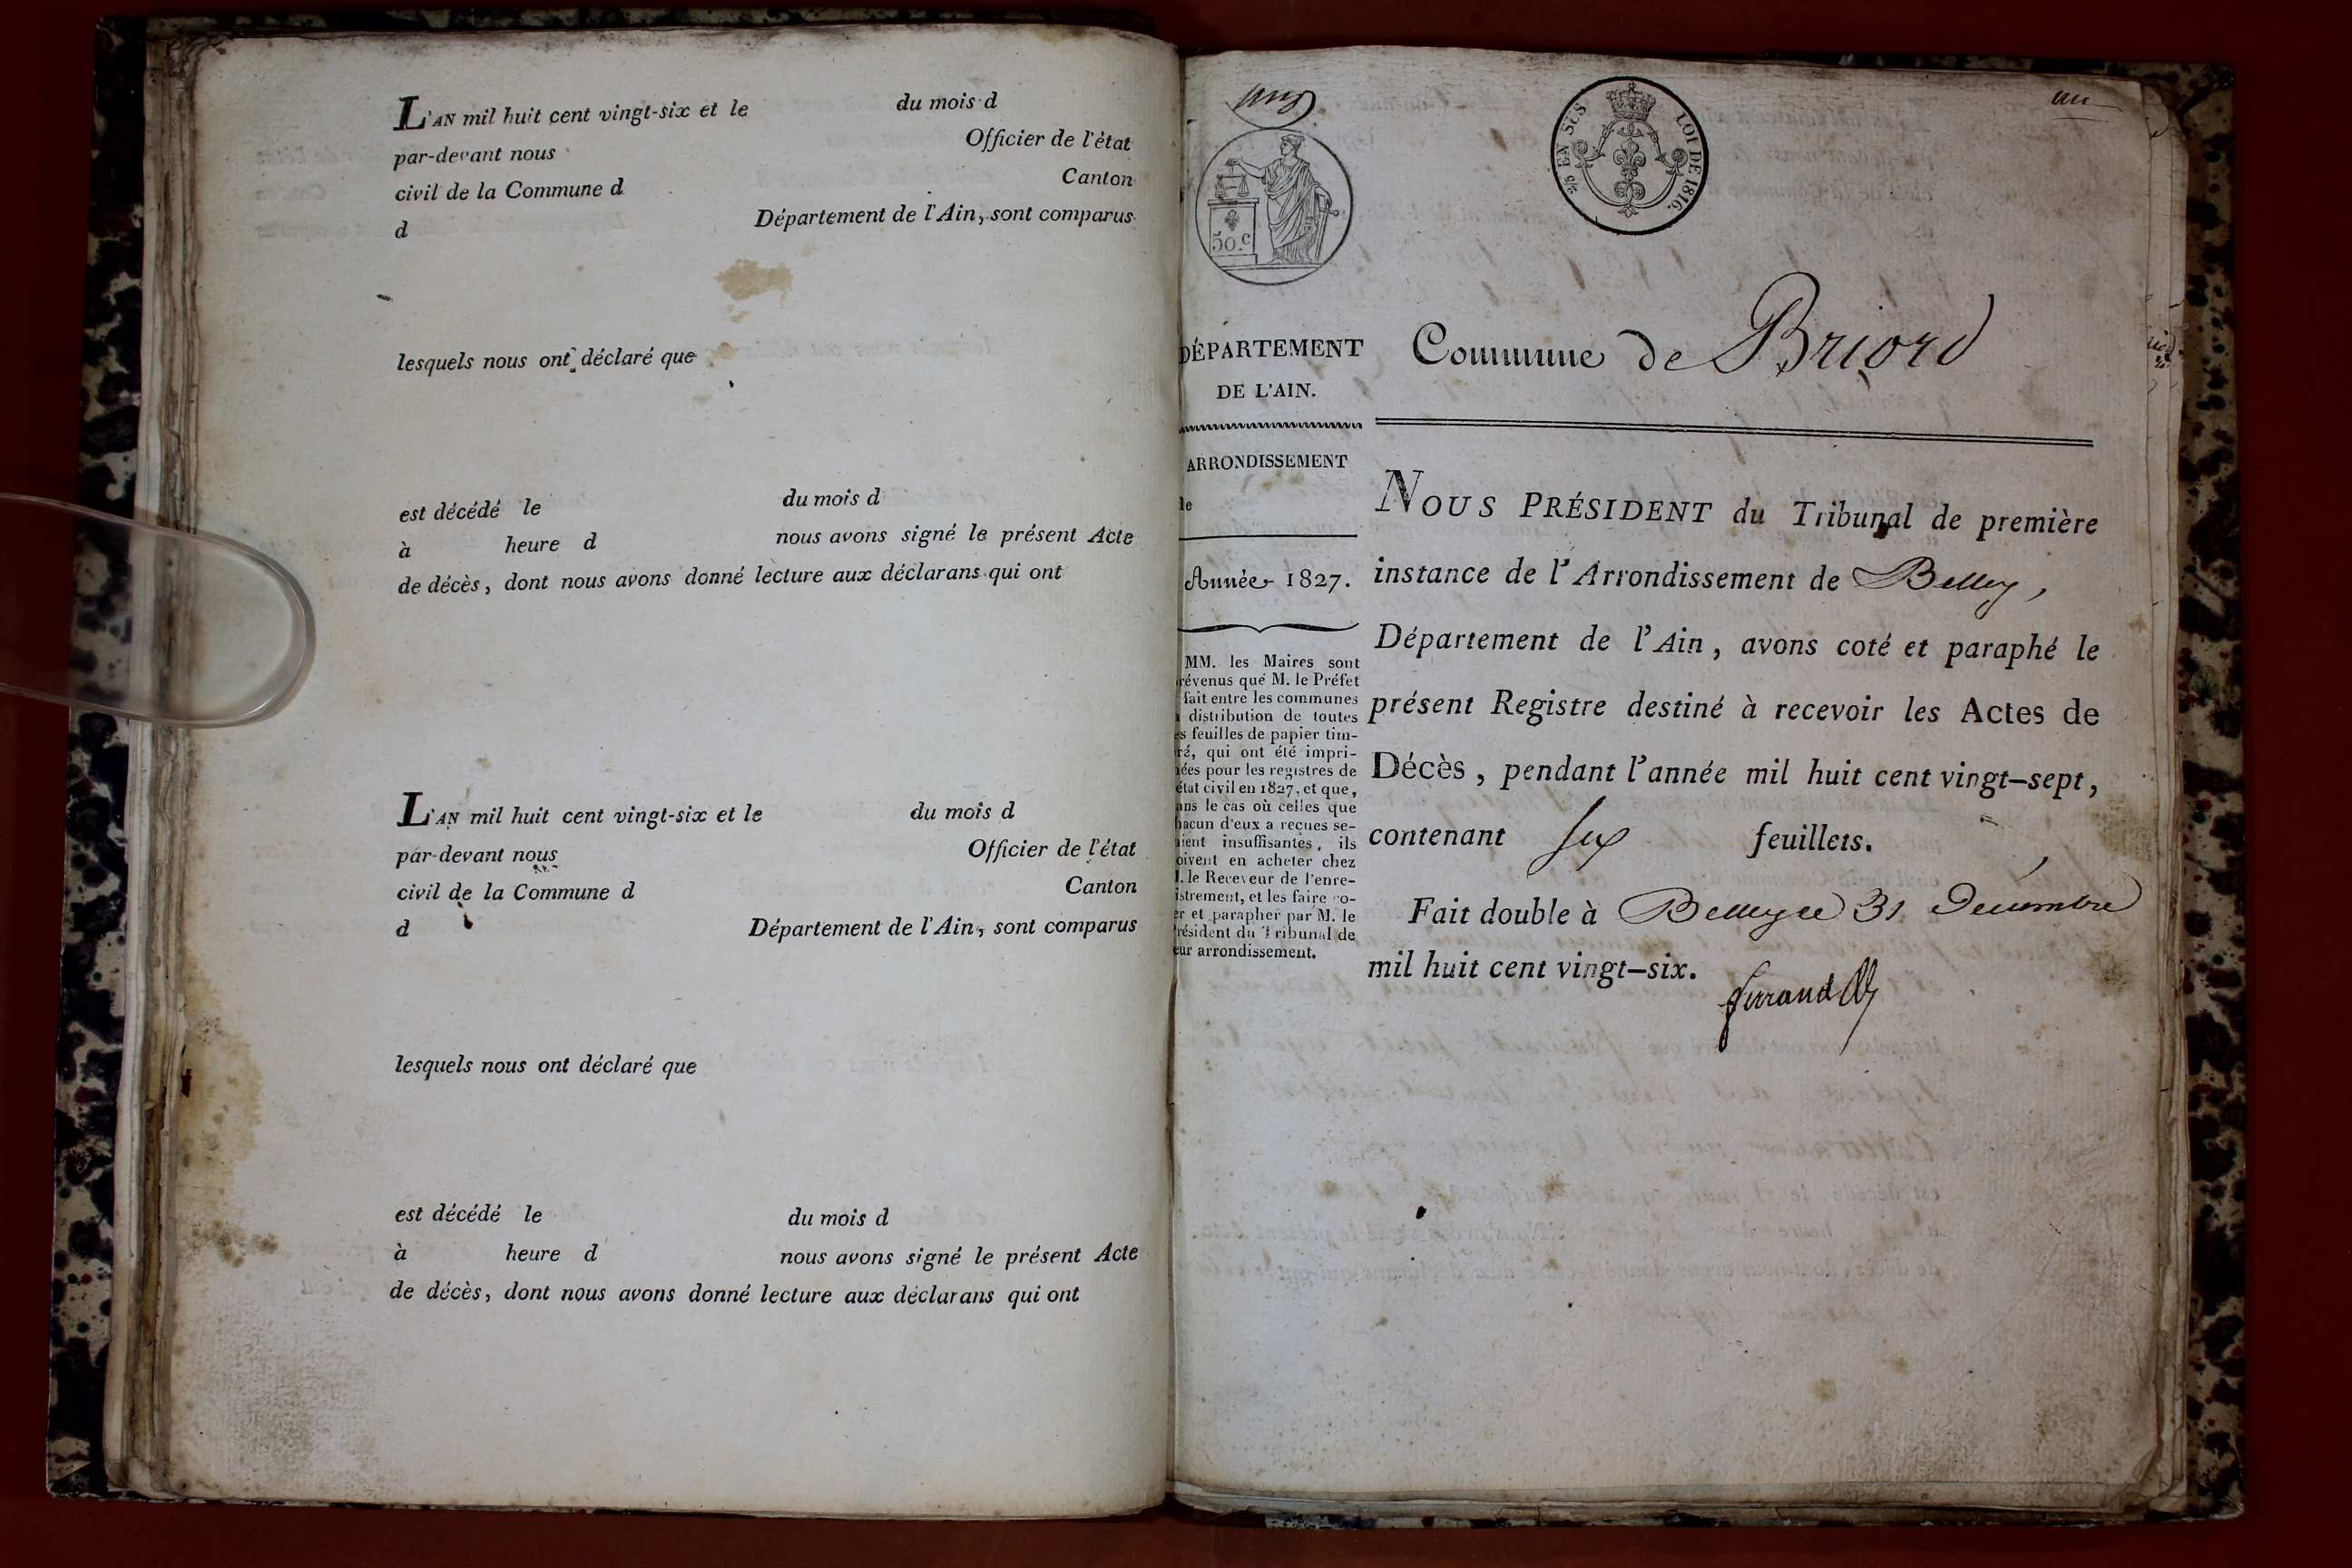 L'AN mil huit cent vingt-six et le du mois d
par-devant nous Officier de l'état
civil de la Commune d Canton
d Département de l'Ain, sont comparus
lesquels nous ont déclaré que
est décédé le du mois d
à heure d nous avons signé le présent Acte
de décès, dont nous avons donné lecture aux déclarans qui ont
L'AN mil huit cent vingt-six et le du mois d
par-devant nous Officier de l'état
civil de la Commune d Canton
d Département de l'Ain, sont comparus
lesquels nous ont déclaré que
est décédé le du mois d
à heure d nous avons signé le présent Acte
de décès, dont nous avons donné lecture aux déclarans qui ont
50.c
2/5 EN SUS LOI DE 1816.
un
DÉPARTEMENT
DE L'AIN.
ARRONDISSEMENT
de
Année 1827.
MM. les Maires sont
révenus que M. le Préfet
fait entre les communes
a distribution de toutes
es feuilles de papier tim-
ré, qui ont été impri-
ées pour les registres de
état civil en 1827, et que,
ans le cas où celles que
hacun d'eux a reçues se-
aient insuffisantes, ils
oivent en acheter chez
M. le Receveur de l'enre-
istrement, et les faire co-
er et parapher par M. le
résident du Tribunal de
eur arrondissement.
Commune de Briord
NOUS PRÉSIDENT du Tribunal de première
instance de l'Arrondissement de Belley,
Département de l'Ain, avons coté et paraphé le
présent Registre destiné à recevoir les Actes de
Décès, pendant l'année mil huit cent vingt-sept,
contenant six feuillets.
Fait double à Belley le 31 Décembre
mil huit cent vingt-six.